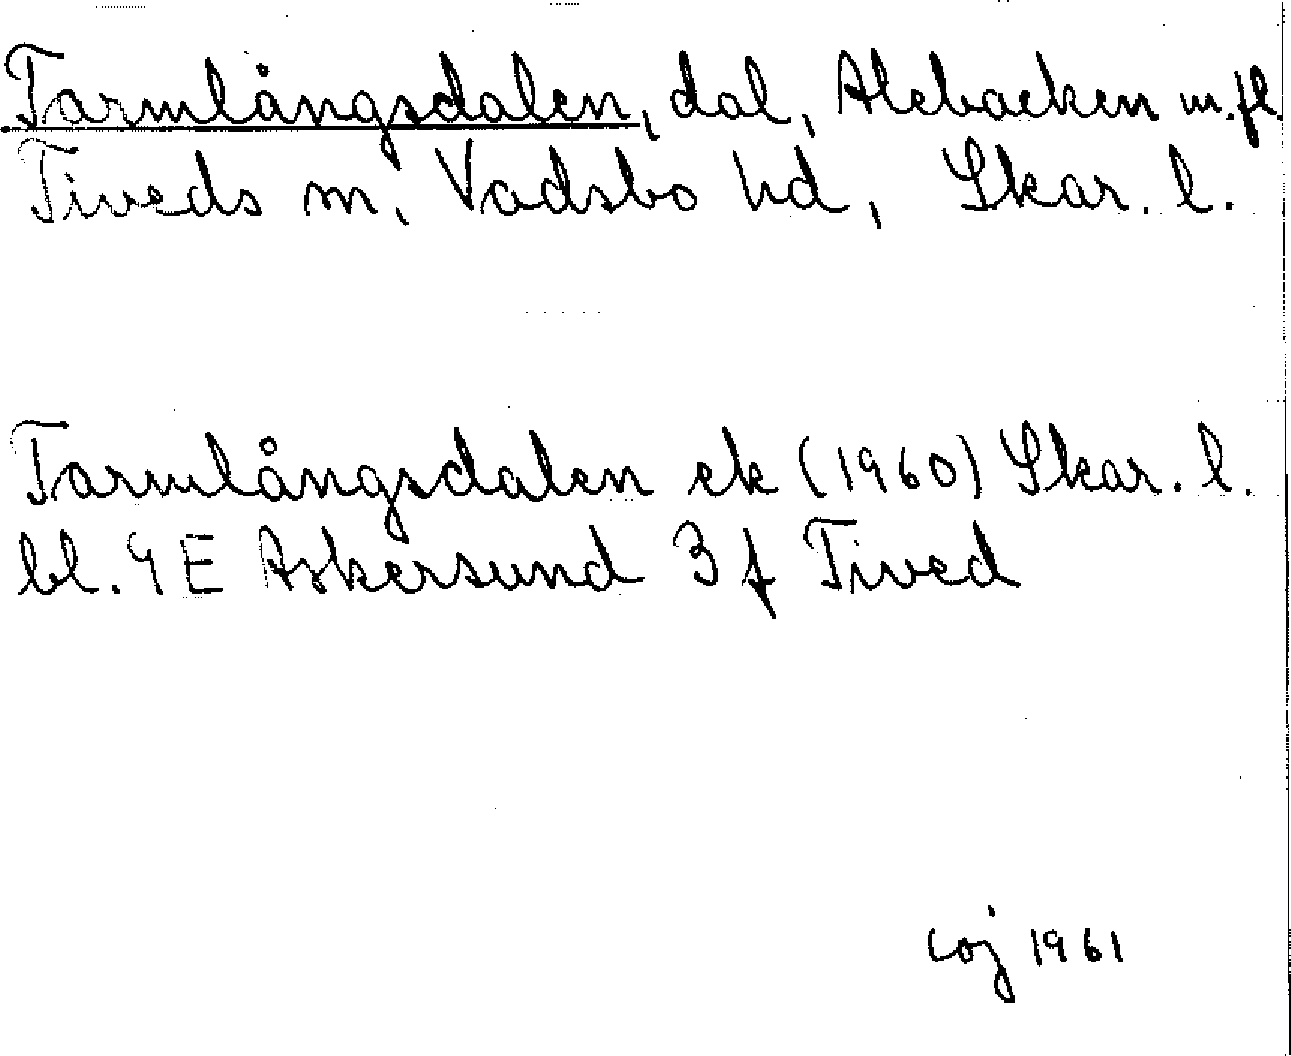 Tarmlångsdalen, dal, Alebacken m.fl.
Tiveds sn, Vadsbo hd, Skar. l.
Tarmlångsdalen ek (1960) Skar. l.
bl. 9E Askersund 3 f Tived
coj 1961